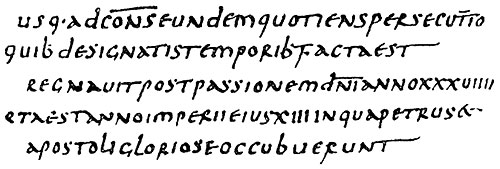 usq· adconseundemquotienspersecutio
quib designatistemporib factaest
regnauitpostpassionemdniannoxxxuiiii
etaestannoimperiieiusxiiiinquapetrus&
apostoliglorioseoccubuerunt